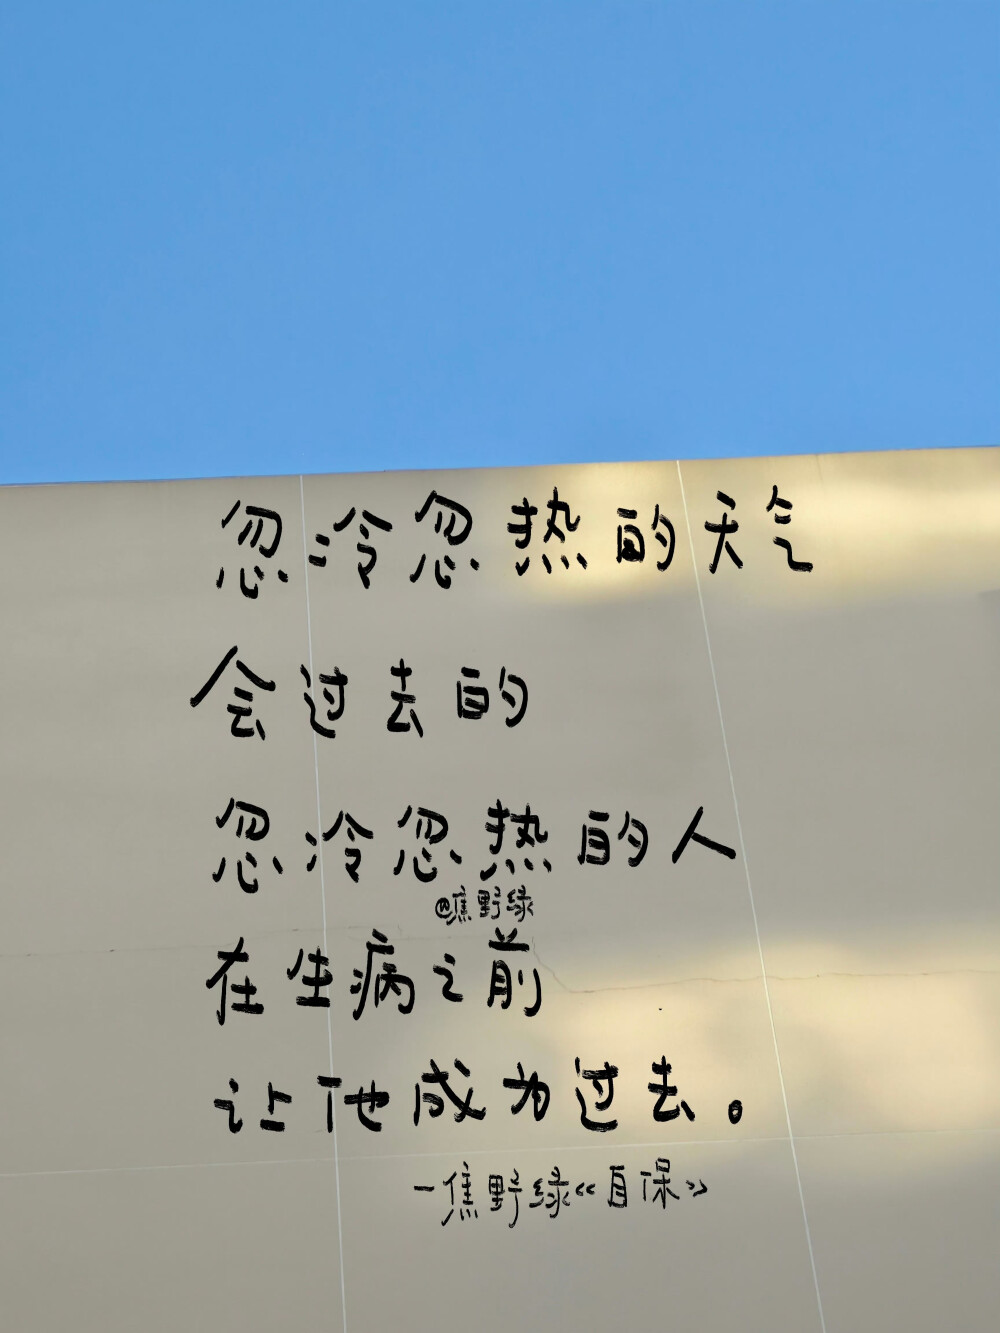 忽冷忽热的天气
会过去的
忽冷忽热的人
@焦野绿
在生病之前
让他成为过去。
一焦野绿《自保》